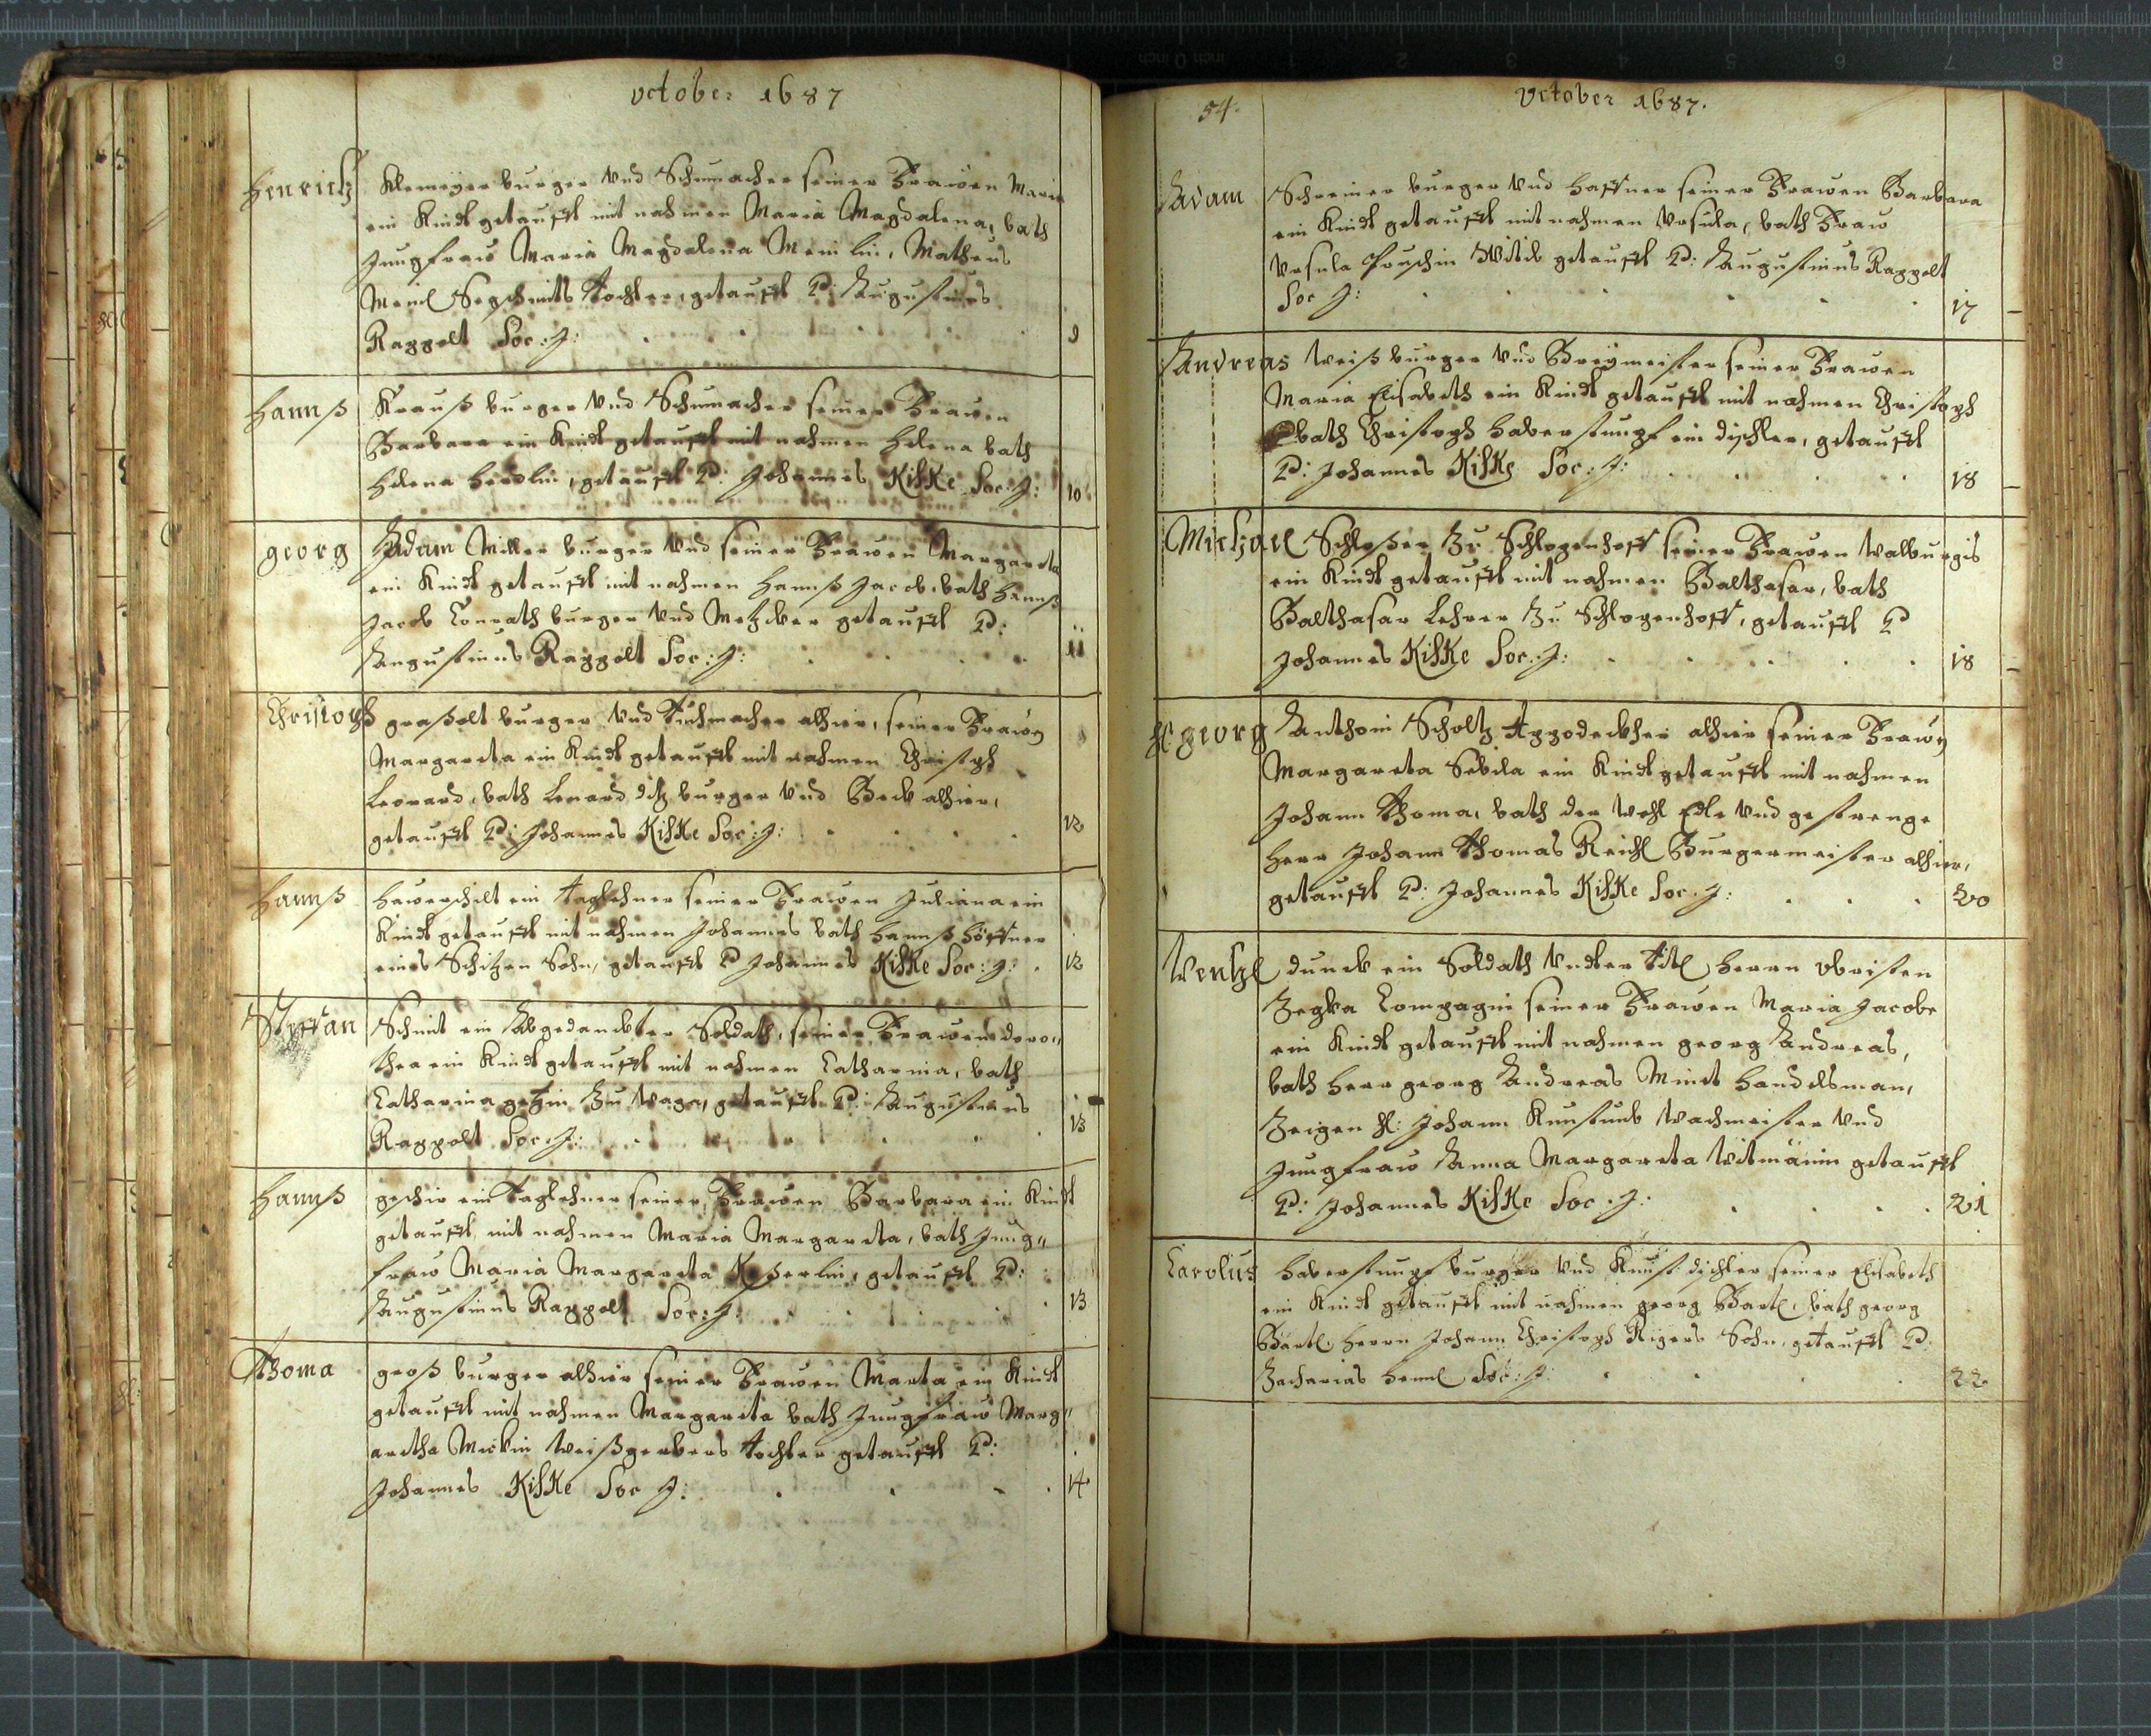 october 1687
Henrich Klemeyer burger Vnd Schumacher seiner Frawen Maria
ein Kindt getaufft mit nahmen Maria Magdalena, bath
Jungfraw Maria Magdalena Meinlin, Matheus
Meinl Tochter, getaufft P: Augustinus
Rappolt Soc: J: 9
Hannß Krauß burger Vnd Schumacher seiner Frawen
Barbara ein Kindt getaufft mit nahmen Helena bath
Helena getaufft P: Johannes Kiske Soc: J: 10
georg Adam Miller burger Vnd seiner Frawen Margareta
ein Kindt getaufft mit nahmen Hannß Jacob, bath Hannß
Jacob Conrath burger Vnd Metzker getaufft P:
Augustinus Rappolt Soc: J: 11
Christoph graßolt burger Vnd Tuchmacher alhier, seiner Frawen
Margareta ein Kindt getaufft mit nahmen Christoph
Leonard, bath Lenard burger Vnd Beck alhier,
getaufft P: Johannes Kiske Soc: J: 12
Hannß ein taglehner seiner Frawen Juliana ein
Kindt getaufft mit nahmen Johannes bath Hannß
eines Schitzen Sohn, getaufft P Johannes Kiske Soc: J: 12
Steffan Schmit ein Abgedanckter Soldath, seiner Frawen doro„
thea ein Kindt getaufft mit nahmen Catharina, bath
Catharina Zu getaufft P: Augustinus
Rappolt Soc. J: 13
Hannß ein taglehner seiner Frawen Barbara ein Kindt
getaufft mit nahmen Maria Margareta, bath Jung„
fraw Maria Margareta getaufft P:
Augustinus Rappolt Soc: J: 13
Thoma groß burger alhier seiner Frawen Marta ein Kindt
getaufft mit nahmen Margareta bath Jungfraw Marg„
aretha weißgerbers tochter getaufft P:
Johannes Kiske Soc J: 14
54.
October 1687.
Adam Schreiner burger Vnd Haffner seiner Frawen Barbara
ein Kindt getaufft mit nahmen Vrsula, bath Fraw
Vrsula Witib getaufft P: Augustinus Rappolt
Soc J: 17
Andreas weiß burger Vnd Breymeister seiner Frawen
Maria Elisabeth ein Kindt getaufft mit nahmen Christoph
bath Christoph Haberstumpf ein dischler, getaufft
P: Johannes Kiske Soc: J: 18
Michael Schloßer Zu Schlogenhoff seiner Frawen Walburgis
ein Kindt getaufft mit nahmen Balthasar, bath
Balthasar Lehrer Zu Schlogenhoff, getaufft P
Johannes Kiske Soc: J: 18
H georg Anthoni Scholtz Appodeckher alhier seiner Frawen
Margareta Sebila ein Kindt getaufft mit nahmen
Johann Thoma, bath der Wohl Edle Vnd gestrenge
Herr Johann Thomas Reichl Burgermeister alhier,
getaufft P: Johannes Kiske Soc. J: 20
Wentzl dunck ein Soldath Vndter titl Herrn obristen
Compagni seiner Frawen Maria Jacobe
ein Kindt getaufft mit nahmen georg Andreas,
bath Herr georg Andreas Minet Handelsman,
Zeigen H: Johann wachmeister Vnd
Jungfraw Anna Margareta Witmänin getaufft
P: Johannes Kiske Soc. J: 21
Carolus Haberstumpf burger Vnd Kunst dischler seiner Elisabeth
ein Kindt getaufft mit nahmen georg Bartl, bath georg
Bartl Herrn Johann Christoph Rigers Sohn, getaufft P:
Zacharias Soc: J: 22